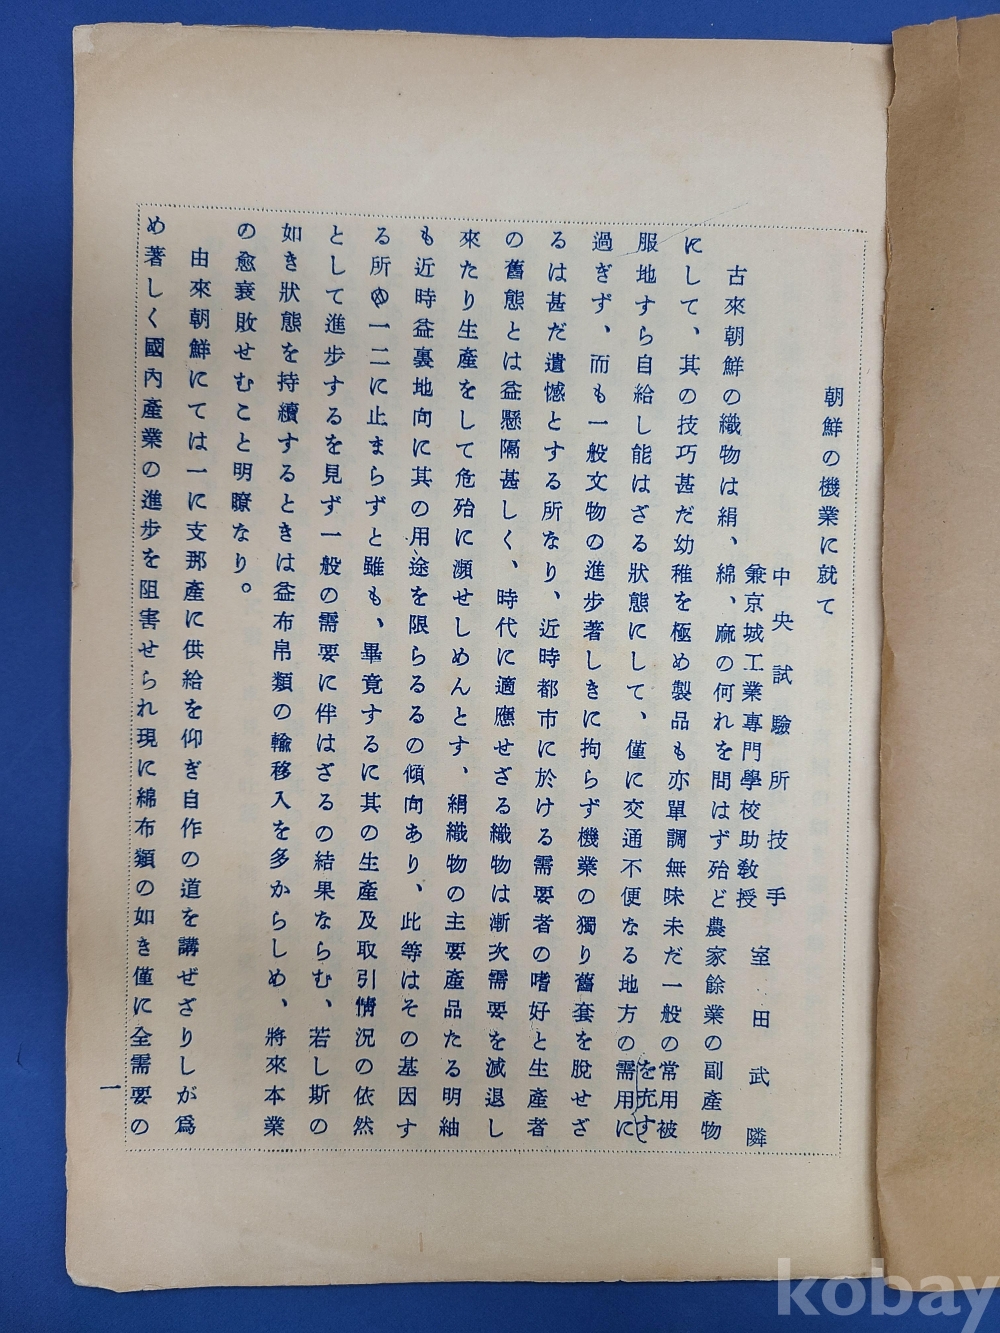 朝鮮の機業に就て
中央試驗所技手
兼京城工業專門學校助敎授
室田武隣
古來朝鮮の織物は絹、綿、麻の何れを問はず殆ど農家餘業の副產物
にして、其の技巧甚だ幼稚を極め製品も亦單調無味未だ一般の常用被
服地すら自給し能はざる狀態にして、僅に交通不便なる地方の需用に
を充すに
過ぎず、而も一般文物の進步著しきに拘らず機業の獨り舊套を脫せざ
るは甚だ遺憾とする所なり、近時都市に於ける需要者の嗜好と生產者
の舊態とは益懸隔甚しく、時代に適應せざる織物は漸次需要を減退し
來たり生產をして危殆に瀕せしめんとす、絹織物の主要產品たる明紬
も近時益裏地向に其の用途を限らるるの傾向あり、此等はその基因す
る所の一二に止まらずと雖も、畢竟するに其の生產及取引情況の依然
として進步するを見ず一般の需要に伴はざるの結果ならむ、若し斯の
如き狀態を持續するときは益布帛類の輸移入を多からしめ、將來本業
の愈衰敗せむこと明瞭なり。
由來朝鮮にては一に支那產に供給を仰ぎ自作の道を講ぜざりしが爲
め著しく國內產業の進步を阻害せられ現に綿布類の如き僅に全需要の
一
kobay